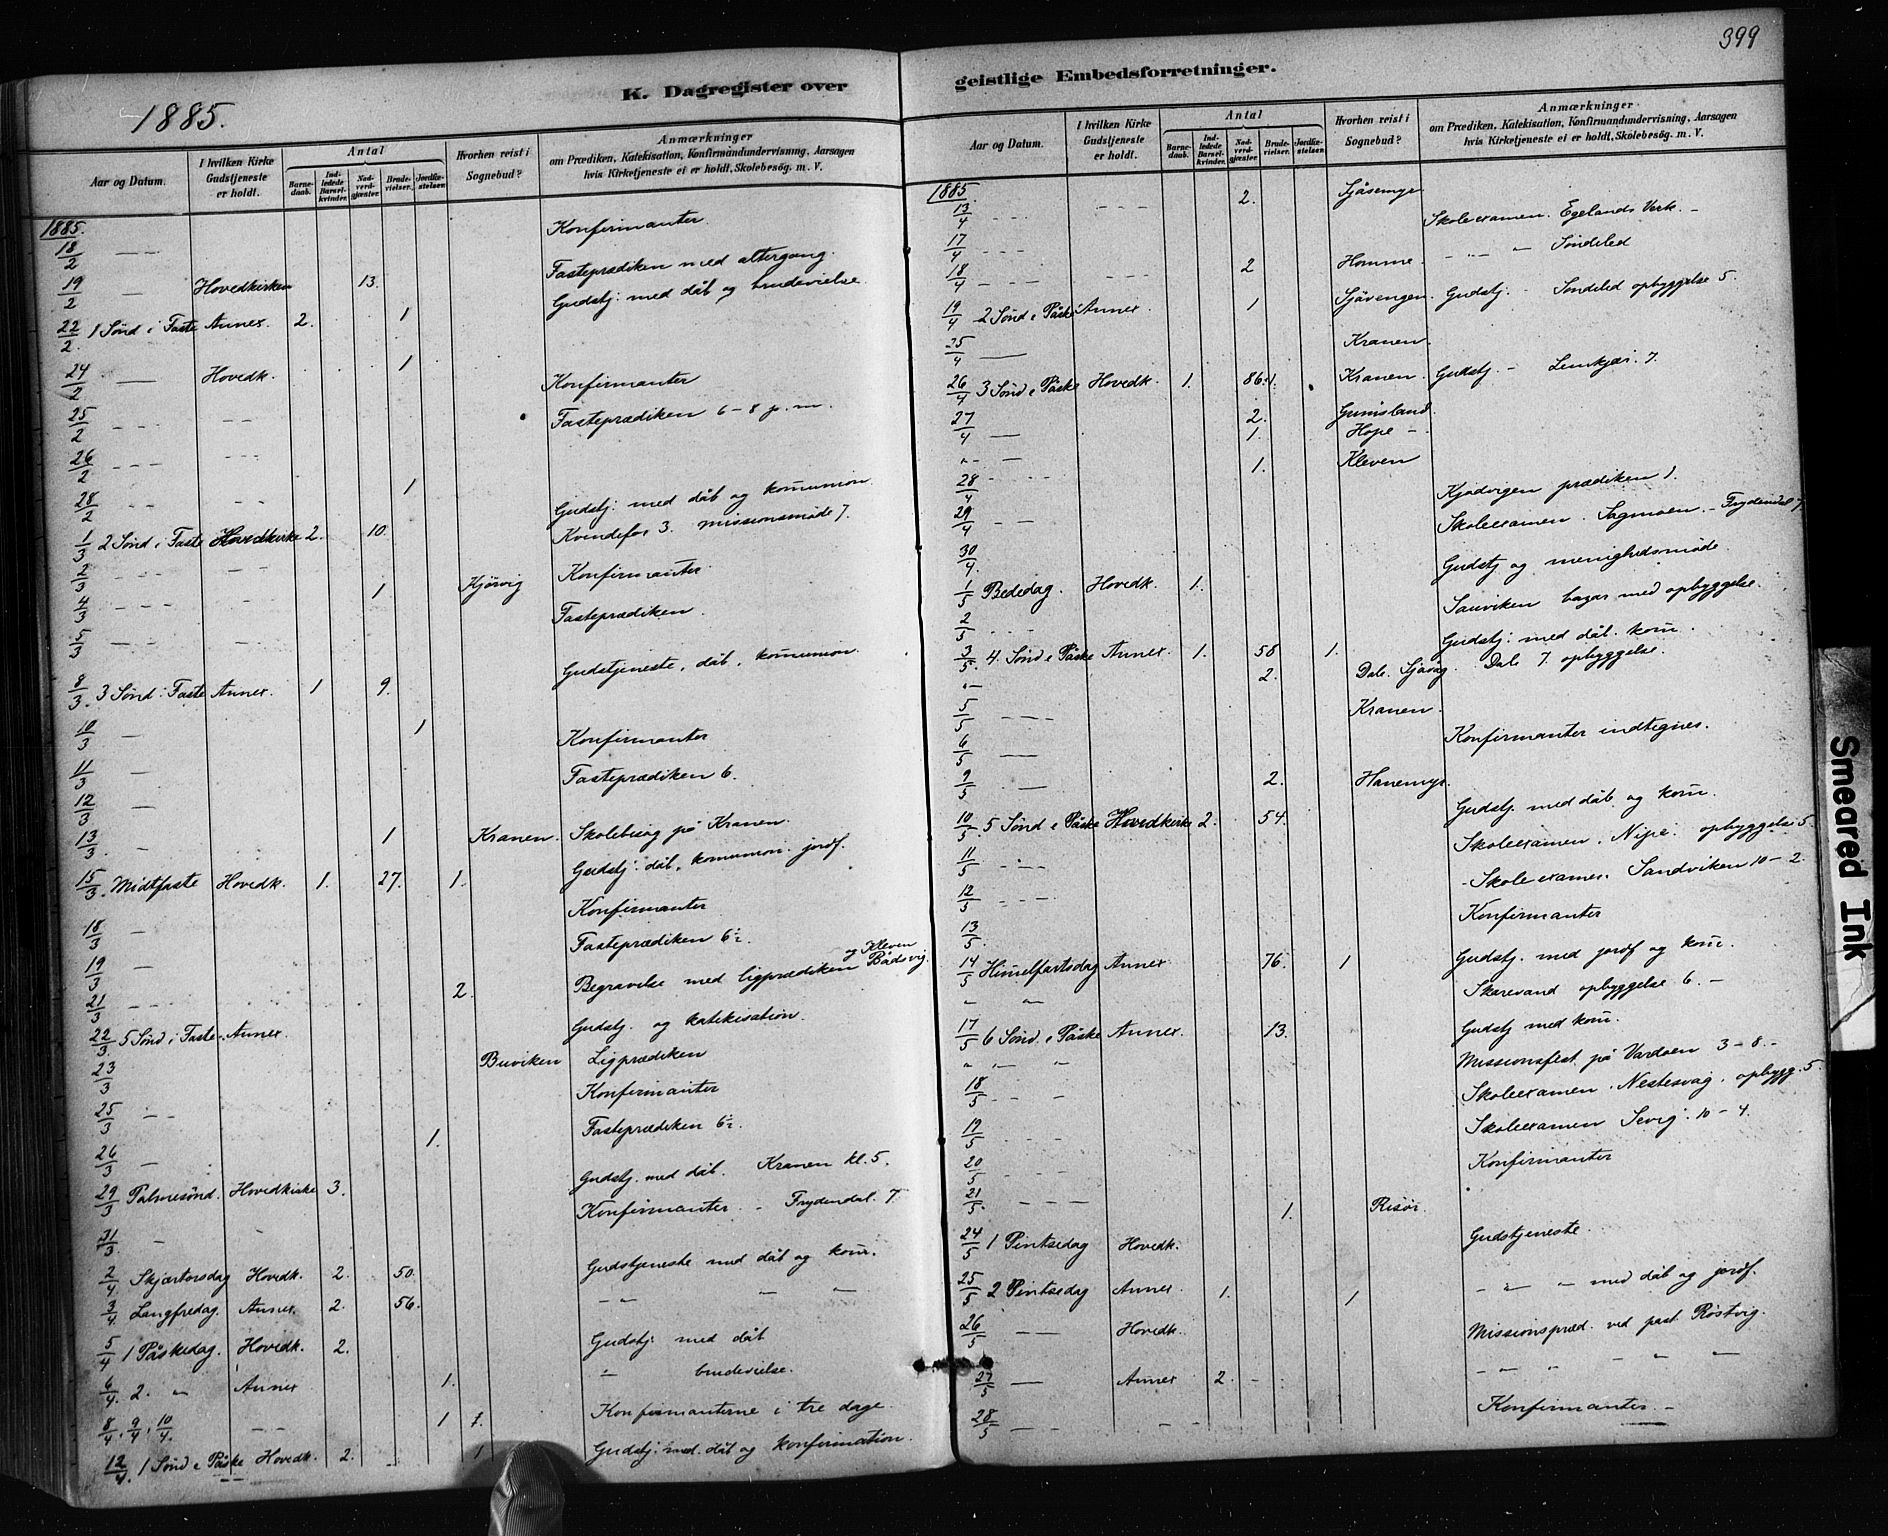 399
K. Dagregister over geistlige Embedsforretninger.
1885.
Aar og Datum. I hvilken Kirke Gudstjeneste er holdt. Antal Barnedaab. Indledede Barselkvinder. Nadverdgjæster. Brudevielser. Jordfæstelser. Hvorhen reist i Sognebud? Anmærkninger om Prædiken, Katekisation, Konfirmandundervisning, Aarsagen hvis Kirketjeneste ei er holdt, Skolebesøg. m. V.
1885.
18/2 — Konfirmanter.
19/2 — Hovedkirken 13. Fasteprædiken med altergang.
22/2 1 Sønd i Faste Annex. 2. 1 Gudstj. med dåb og brudevielse.
24/2 — Hovedk. 1
25/2 Konfirmanter
26/2 Fasteprædiken 6-8 p.m.
28/2 1
1/3 2 Sønd i Faste Hovedkirke 2. 10. Gudstj. med dåb og komunion
Kvindefor 3. missionsmøde 7.
2/3
4/3 1 Kjørvig Konfirmanter.
5/3 Fasteprædiken.
8/3. 3 Sønd i Faste Annex. 1 9. Gudstjeneste, dåb, komunion.
10/3 — 1
11/3 — Konfirmanter
12/3 — Fasteprædiken 6.
13/3. 1 Kranen. Skolebesøg på Kranen.
15/3. Midtfaste Hovedk. 1. 27. 1. Gudstj. dåb, komunion. jordf.
18/3 — Konfirmanter
19/3 — Fasteprædiken 6½.
21/3 2. Begravelse med ligprædiken og Kleven Bådsvig.
22/3 5 Sønd i Faste Annex. Gudstj. og katekisation.
23/3 Buviken Ligprædiken
25/3 — Konfirmanter
26/3 — 1. Fasteprædiken 6½.
29/3 Palmesønd. Hovedkirke 3. Gudstj. med dåb. Kranen kl. 5.
31/3. Konfirmanter — Frydendal. 7.
2/4. Skjærtorsdag Hovedk. 2. 50. Gudstjeneste med dåb og kom.
3/4. Langfredag. Annex. 2. 56. — " — " — "
5/4 1 Påskedag. Hovedk. 2. Gudstj. med dåb
6/4. 2. " Annex 1. — brudevielse.
8/4. 9/4. 10/4. 1 7. Konfirmanterne i tre dage
12/4. 1 Sønd e Påske Hovedk. 2. 1 Gudstj. med dåb og konfirmation.
Aar og Datum. I hvilken Kirke Gudstjeneste er holdt. Antal Barnedaab. Indledede Barselkvinder. Nadverdgjæster. Brudevielser. Jordfæstelser. Hvorhen reist i Sognebud? Anmærkninger om Prædiken, Katekisation, Konfirmandundervisning, Aarsagen hvis Kirketjeneste ei er holdt, Skolebesøg. m. V.
1885.
13/4 2. Sjåsemyr
17/4 Skoleexamen. Egelands Verk. —
18/4 2 Homme. — " — Søndeled
19/4 2 Sønd e Påske Annex. 1 Sjåvengen. Gudstj. — Søndeled opbyggelse 5.
25/4 — Kranen.
26/4 3 Sønd e Påske Hovedk. 1. 86. 1. Kranen. Gudstj. — Lemkjær. 7.
27/4 — 2. Gunisland.
" — 1. Hope —
28/4 1. Kleven
29/4 Kjødvigen prædiken 1.
30/4. Skoleexamen. Sagmoen. — Frydendal 7
1/5 Bededag. Hovedk. 1. Gudstj og menighedsmøde.
2/5 Sauviken bazar med opbyggelse.
3/5. 4. Sønd e Påske Annex. 1. 58. 1. Gudstj. med dåb. kom.
" 2. Dale. Sjåvåg. Dale 7. opbyggelse.
5/5 Kranen.
6/5 — Konfirmanter indtegnes.
9/5 2. Hanemyr.
10/5. 5 Sønd e Påske Hovedkirke 2. 54. Gudstj. med dåb og kom.
11/5 Skoleexamen. Nipe. opbyggelse 5.
12/5 Skoleexamen. Sandviken 10-2.
13/5. Konfirmanter
14/5 Himelfartsdag Annex 76. 1 Gudstj. med jordf og kom.
" " Skarevand opbyggelse 6. —
17/5 6 Sønd. e Påske Annex. 13. Gudstj med kom.
" " " Missionsfest på Vardøen 3-8.-
18/5 Skoleexamen. Nestesvåg. opbygg. 5.
19/5 Skoleexamen Sevig. 10-4.
20/5 Konfirmanter
21/5. 1. Risør.
24/5 1 Pintsedag Hovedk. Gudstjeneste.
25/5 2 Pintsedag Annex. 1. 1 — " — med dåb og jordf.
26/5 — Hovedk. Missionspræd. ved past. Røstvig.
27/5 — Annex 2. — " " — " —
28/5 Konfirmanter. —
Smeared Ink